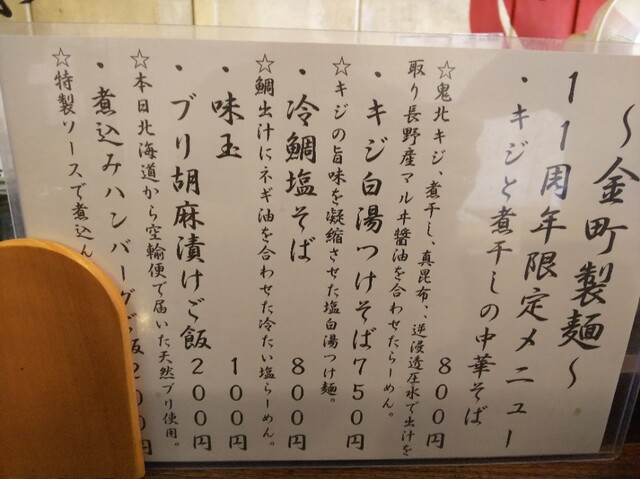 ～金町製麺～
11周年限定メニュー
・キジと煮干しの中華そば
800円
☆鬼北キジ、煮干し、真昆布、逆浸透圧水で出汁を
取り長野産マルヰ醬油を合わせたらーめん。
・キジ白湯つけそば750円
☆キジの旨味を凝縮させた塩白湯つけ麺。
・冷鯛塩そば 800円
☆鯛出汁にネギ油を合わせた冷たい塩らーめん。
・味玉 100円
・ブリ胡麻漬けご飯200円
☆本日北海道から空輸便で届いた天然ブリ使用。
・煮込みハンバーグご飯200円
☆特製ソースで煮込ん